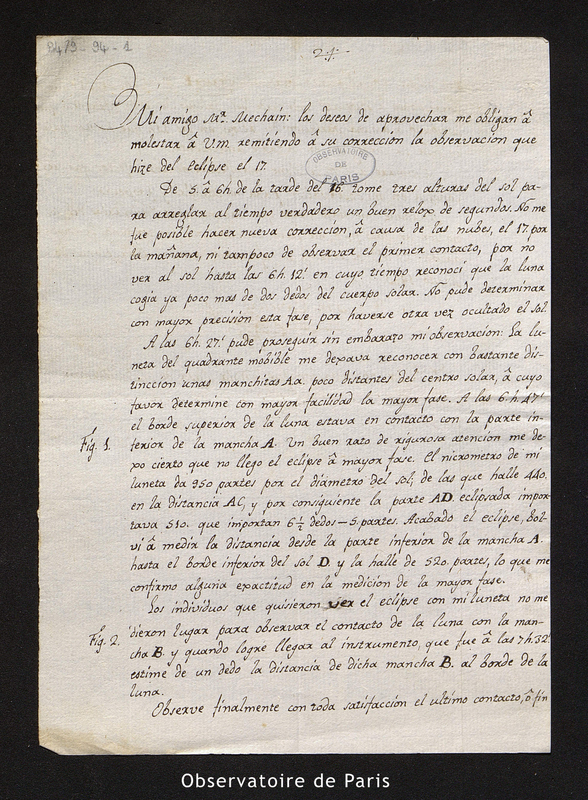 B4/9-94-1
24.
Mi amigo Mr. Mechain: los deseos de aprovechar me obligan â
molestar â Vm. remitiendo â su correccion la observacion que
hize del Eclipse el 17.
OBSERVATOIRE
DE
PARIS
De 5. â 6h. de la tarde del 16. tome tres alturas del sol pa-
ra arreglar al tiempo verdadero un buen relox de segundos. No me
fue posible hacer nueva correccion, â causa de las nubes, el 17. por
la mañana, ni tampoco de observar el primer contacto, por no
ver al sol hasta las 6h. 12'. en cuyo tiempo reconoci que la luna
cogia ya poco mas de dos dedos del cuerpo solar. No pude determinar
con mayor precision esta fase, por haverse otra vez ocultado el sol.
A las 6h. 27'. pude proseguir sin embarazo mi observacion: La lu-
neta del quadrante mobible me dexava reconocer con bastante dis-
tinccion unas manchitas Aa. poco distantes del centro solar, â cuyo
favor determine con mayor facilidad la mayor fase. A las 6.h 47'
el borde superior de la luna estava en contacto con la parte in-
Fig. 1.
ferior de la mancha A. Un buen rato de rigurosa atencion me de-
xo cierto que no llego el eclipse â mayor fase. El micrometro de mi
luneta da 950 partes por el diametro del sol, de las que halle 440.
en la distancia AC, y por consiguiente la parte AD eclipsada impor-
tava 510. que importan 6½ dedos – 5. partes. Acabado el eclipse, bol-
vi â medir la distancia desde la parte inferior de la mancha A.
hasta el borde inferior del sol D. y la halle de 520. partes, lo que me
confirmo alguna exactitud en la medicion de la mayor fase.
Los individuos que quisieron ver el eclipse con mi luneta no me
Fig. 2.
dieron lugar para observar el contacto de la luna con la man-
cha B. y quando logre llegar al instrumento, que fue â las 7h. 32'.
estime de un dedo la distancia de dicha mancha B. al borde de la
luna.
Observe finalmente con toda satisfaccion el ultimo contacto, ô fin
Observatoire de Paris